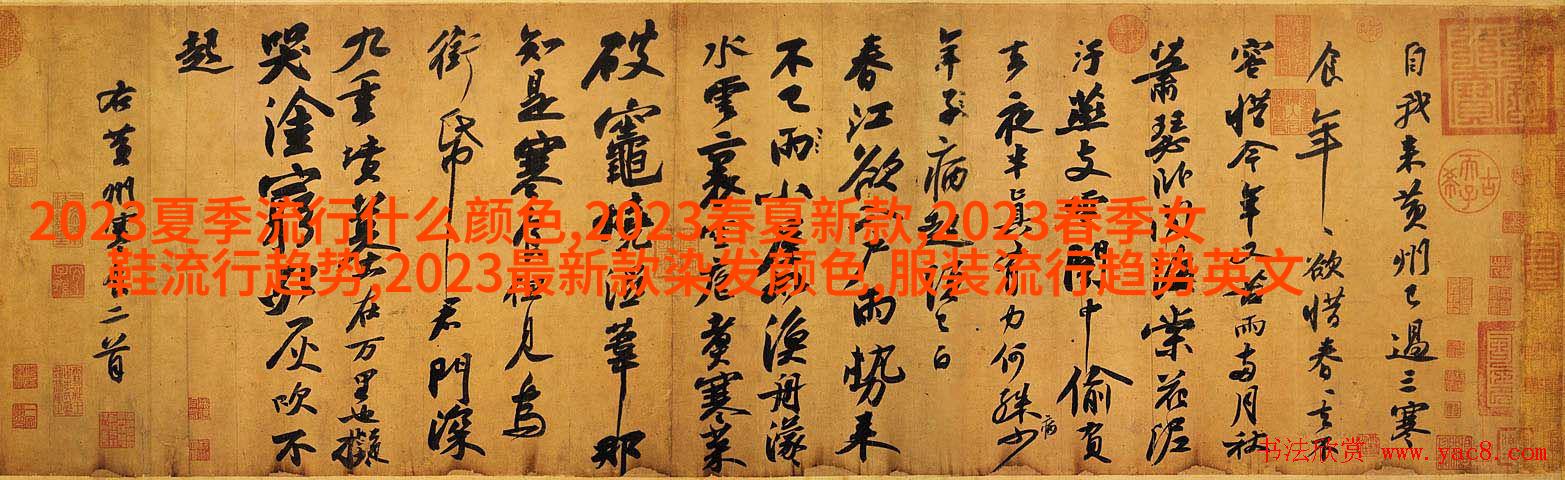 自我来黄州已過三寒
食年〻欲惜春〻去不
容惜今年又苦雨兩月秋
蕭瑟卧聞海棠花泥
汙燕支雪闇中偷負
去夜半真有力何殊少
病
年子病起頭已白
春江欲入户雨勢来
不已雨小屋如漁舟濛〻
水雲裏空庖煑寒菜
破竈燒濕葦那
知是寒食但見烏
銜帋君門深
九重墳墓在万里也擬
哭塗窮死灰吹不
起
右黄州寒食二首
2023夏季流行什么颜色,2023春夏新款,2023春季女
鞋流行趋势,2023最新款染发颜色,服装流行趋势英文
书法欣赏 www.yac8.com